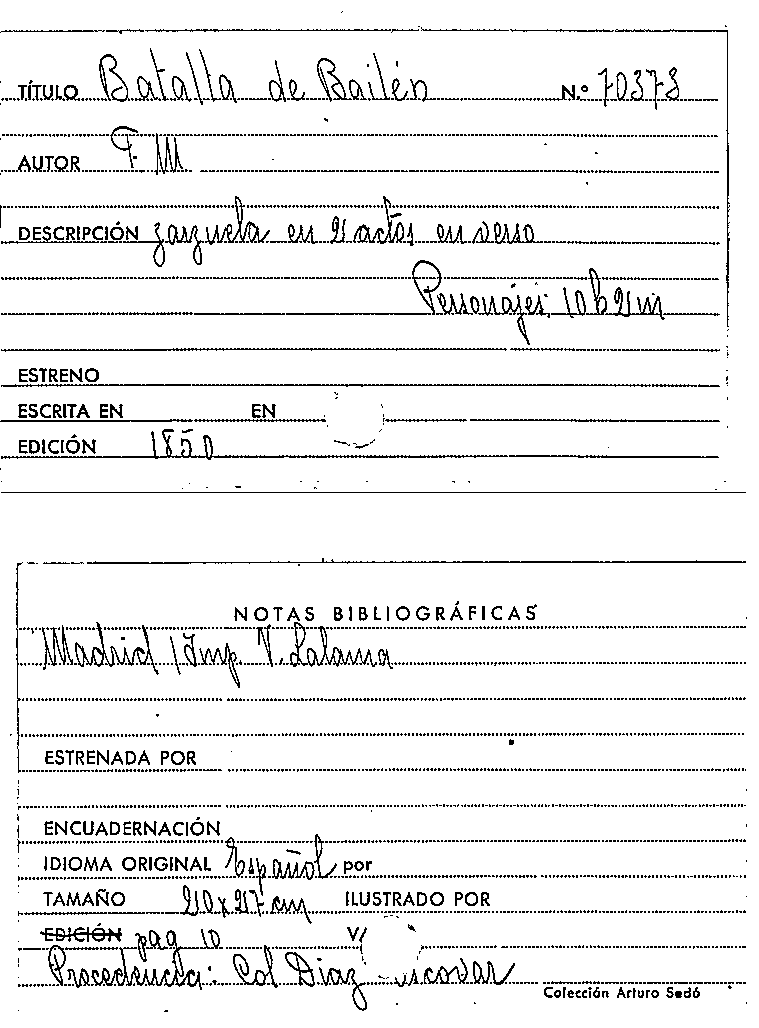 TÍTULO Batalla de Bailén N.º 70373
AUTOR F. M
DESCRIPCIÓN zarzuela en 2 actos en verso
Personajes: 10 h 2 m
ESTRENO
ESCRITA EN EN
EDICIÓN 1850
NOTAS BIBLIOGRÁFICAS
Madrid / Imp. V. Lalama
ESTRENADA POR
ENCUADERNACIÓN
IDIOMA ORIGINAL Español por
TAMAÑO 20 x 27 cm ILUSTRADO POR
EDICIÓN pag 10 V/
Procedencia: Col Diaz
Colección Arturo Sedó